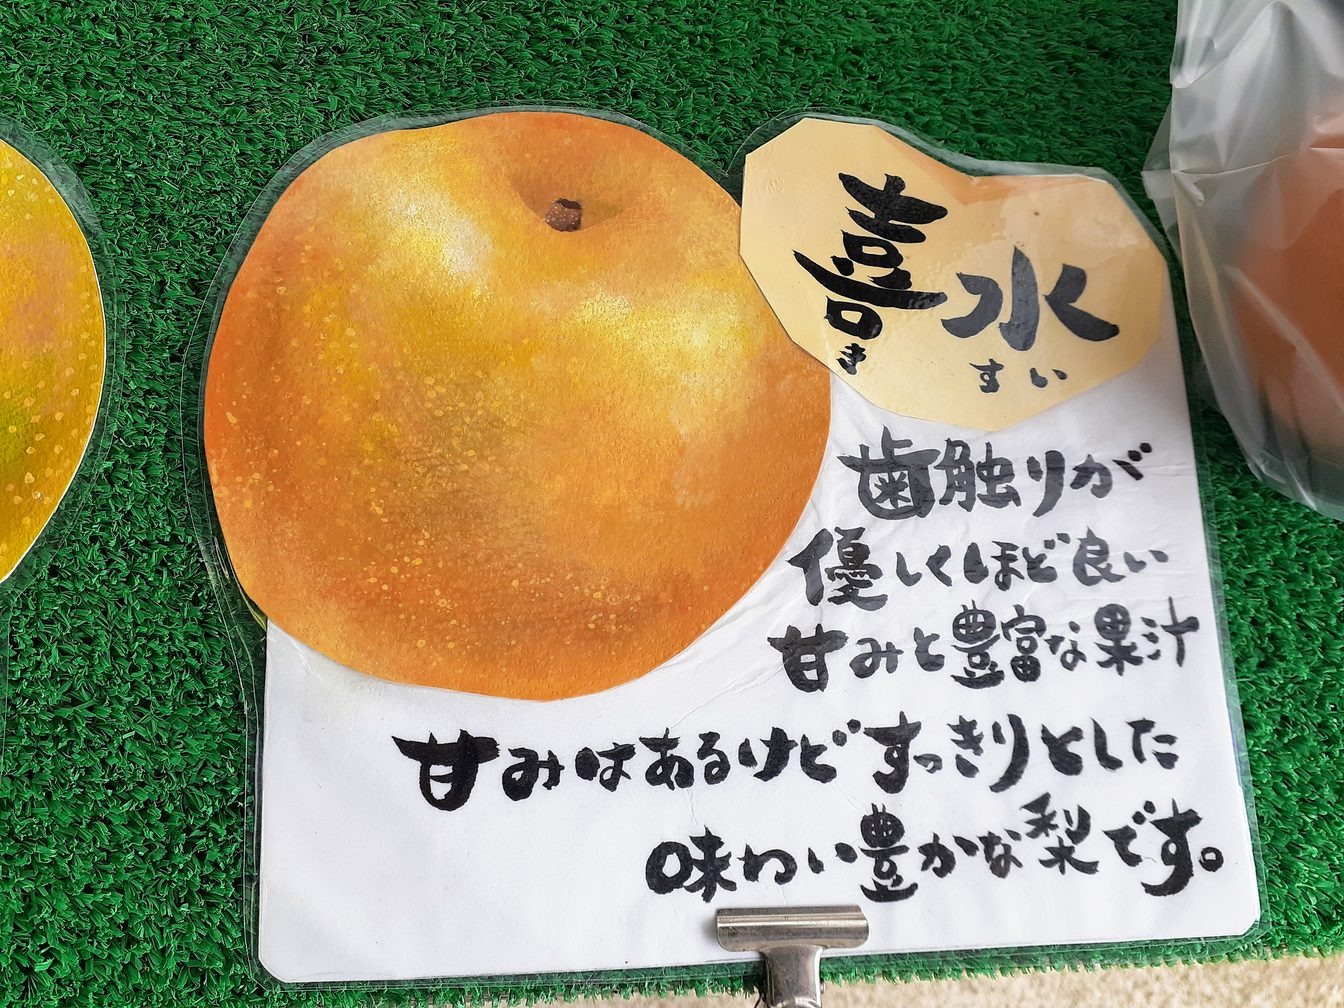 喜水
きすい
歯触りが
優しくほど良い
甘みと豊富な果汁
甘みはあるけどすっきりとした
味わい豊かな梨です。